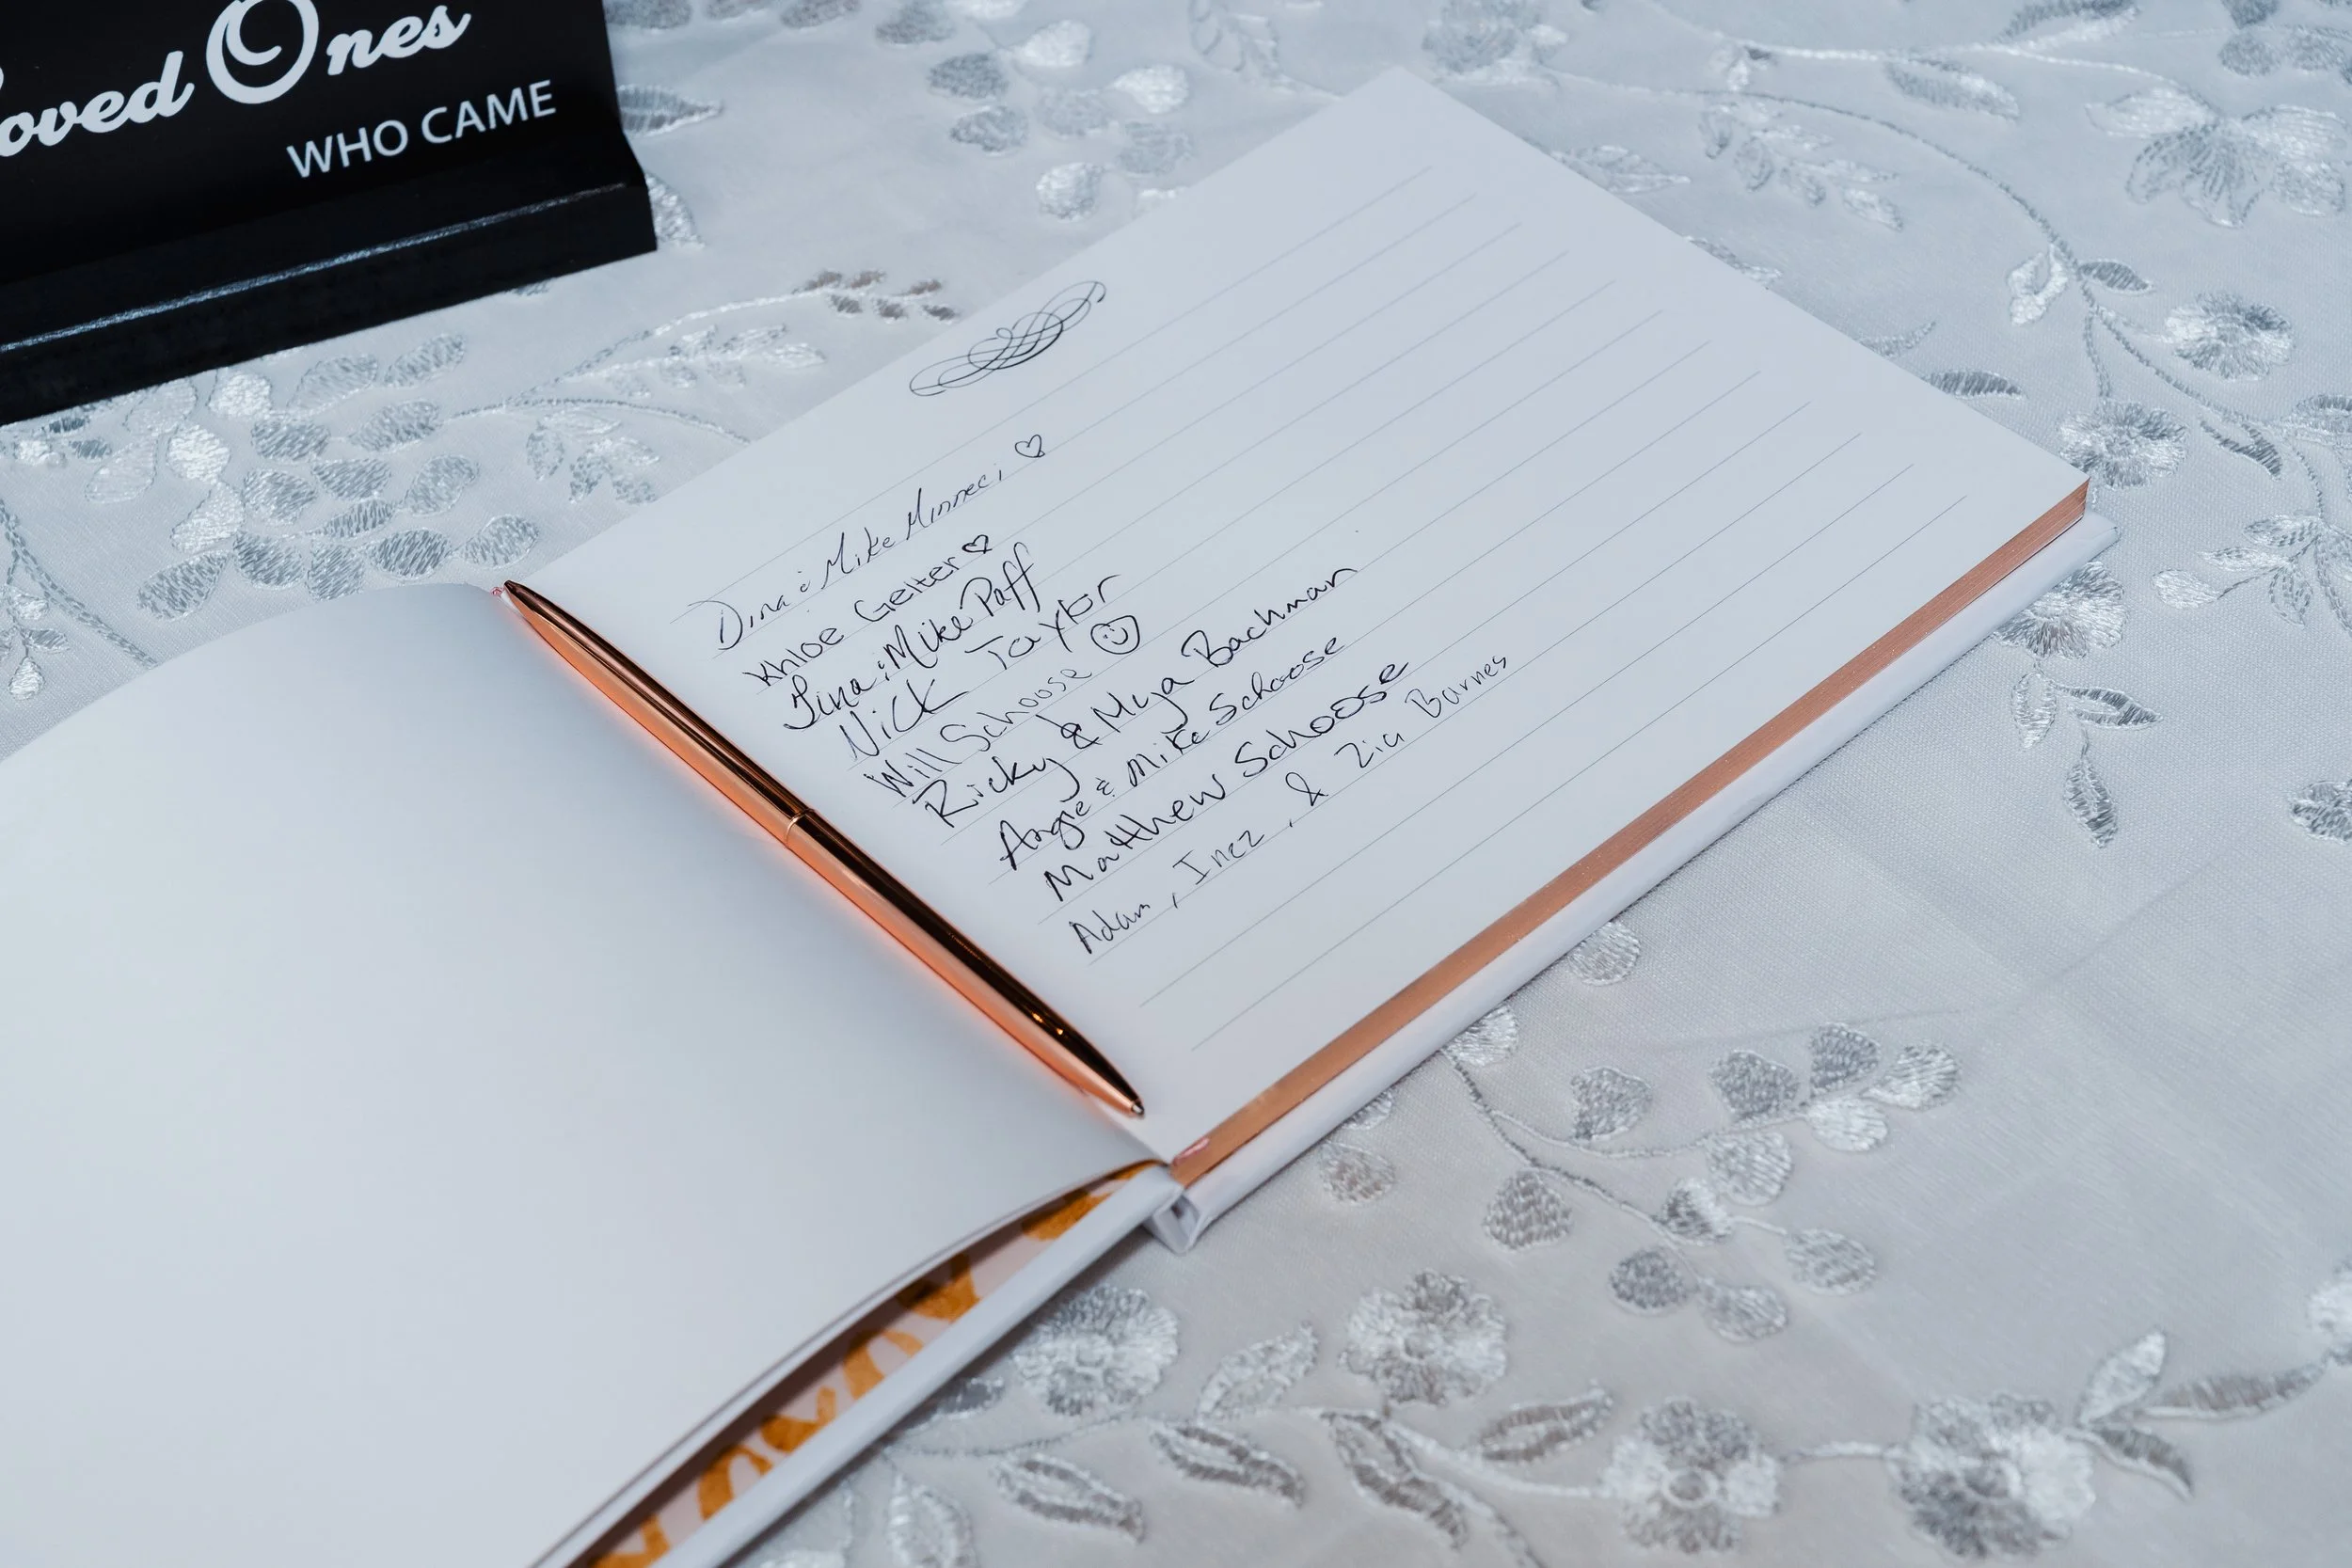 oved Ones
WHO CAME
Dina & Mike Minneci ♡
Khloe Geiter ♡
Tina & Mike Paff
Nick Taylor
Will Schoose ☺
Ricky & Mya Bachman
Angie & Mike Schoose
Matthew Schoose
Adam, Inez, & Zia Barnes